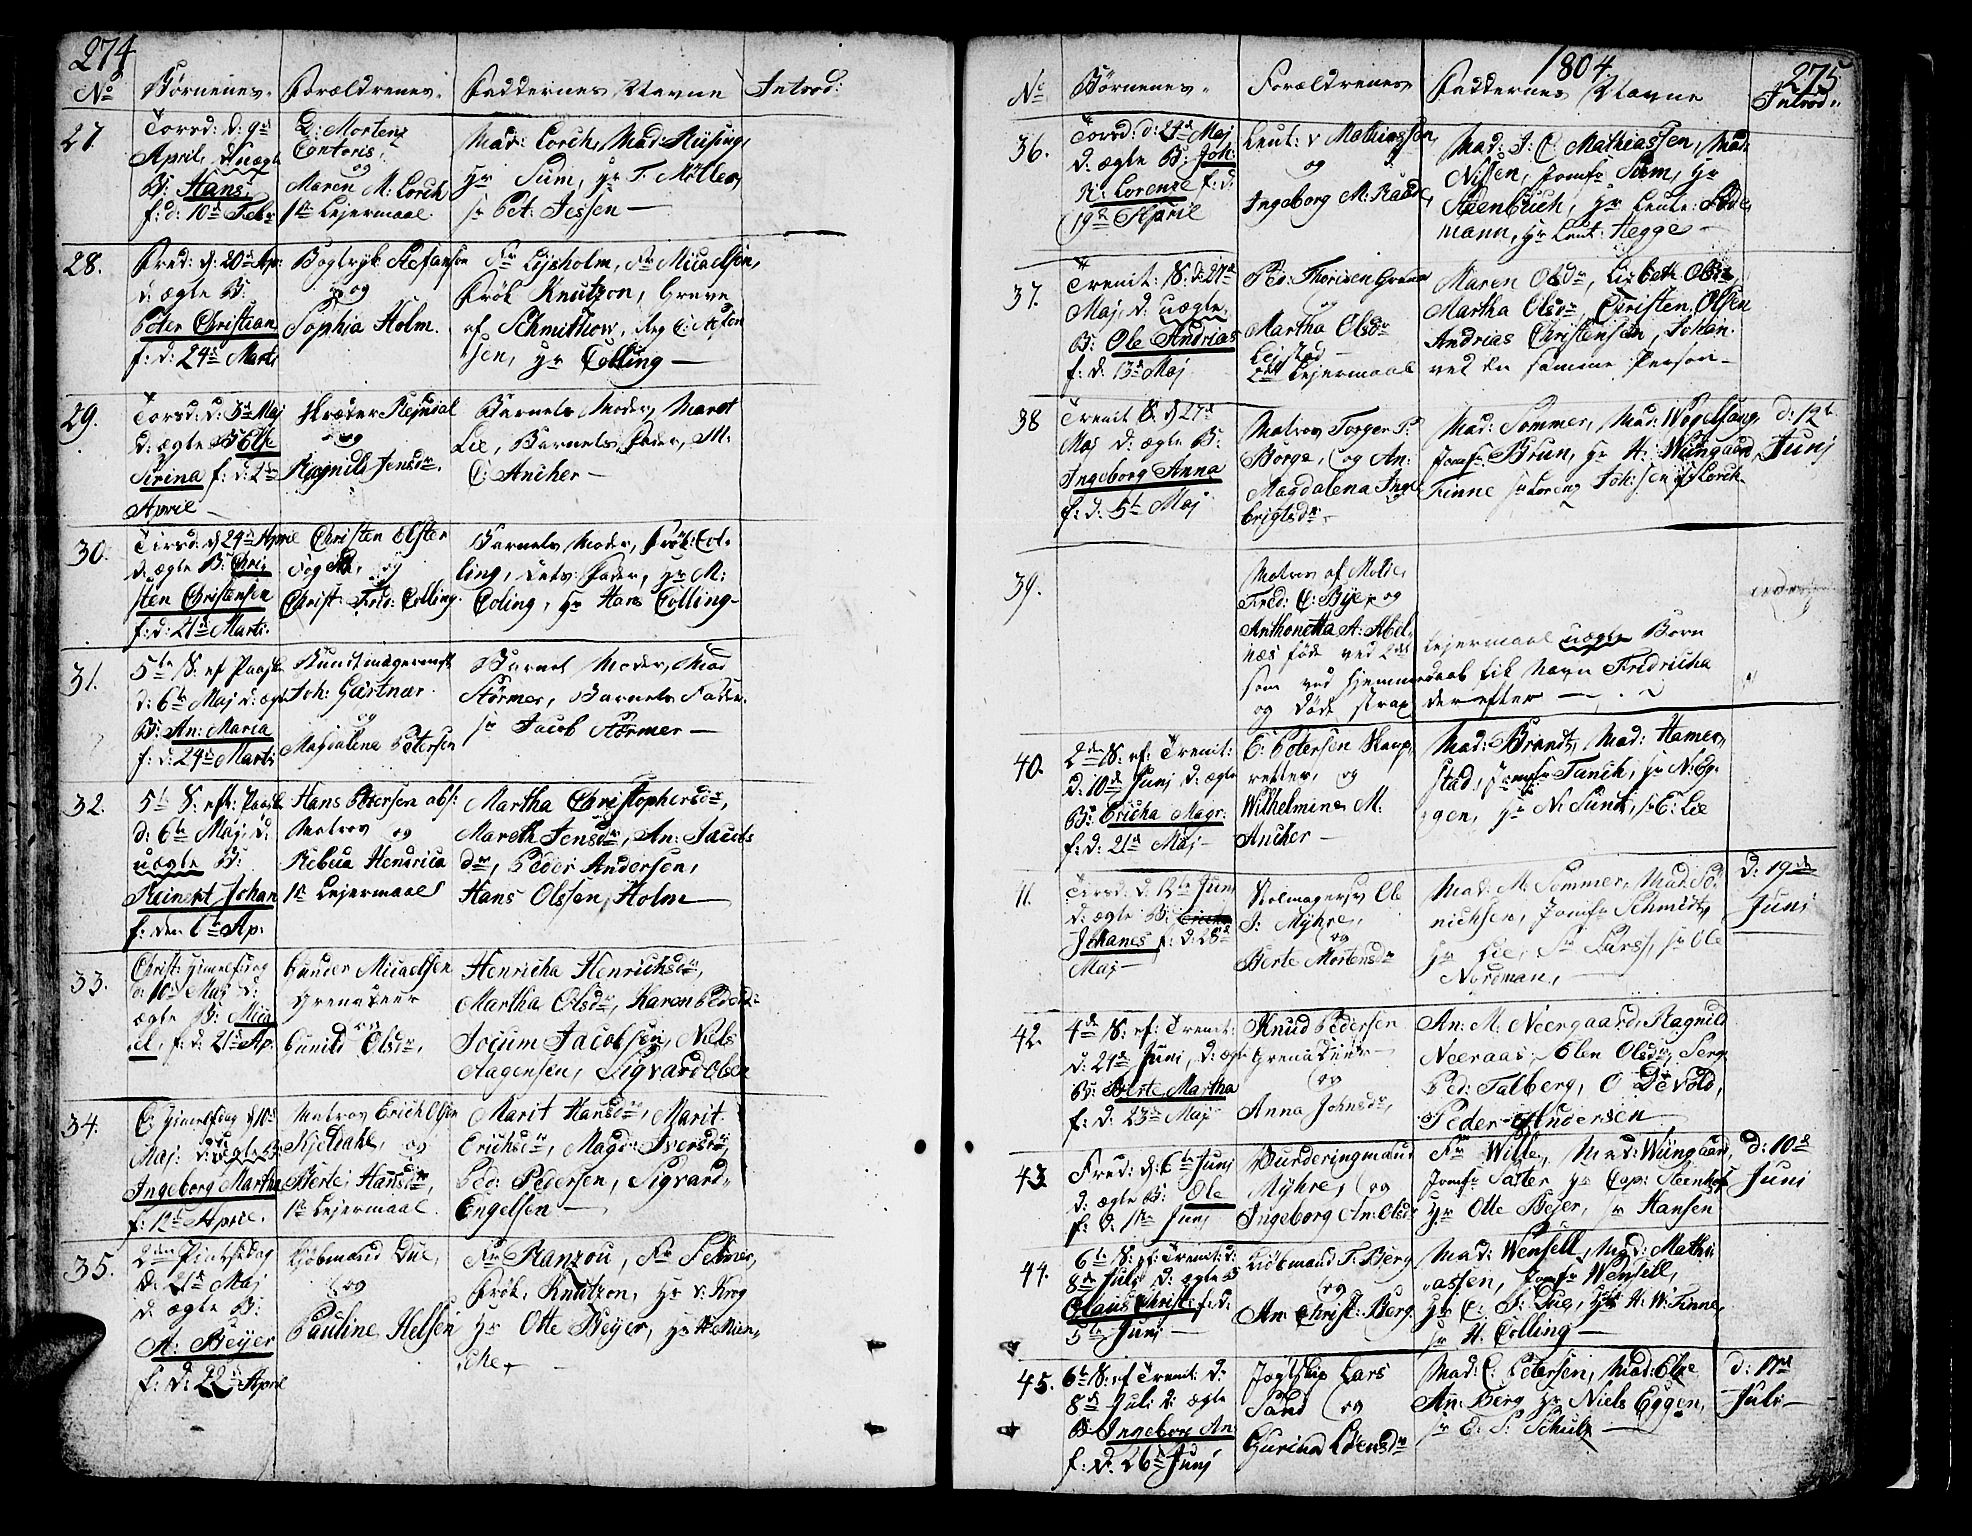 274
No Børnenes Forældrenes Faddernes Navne Introd:
27. Torsd: d: 9de
April, d: uægte
B: Hans
f: d: 10de Febr
D: Morten
Contoris,
og
Maren M: Lorch
1te Lejermaal.
Mad: Lorch, Mad: Rüsing,
Hr Sum, Hr T. Møller,
Sr Pet: Jessen —
28. Fred: d: 20de Ap:
d: ægte B:
Peter Christian
f: d: 24de Marti
Bogtryk: Stefansen
og
Sophia Holm.
Fr Lysholm, Fr Micaelsen,
Frøk Knutzon, Greve
af Schmittow,
Hr Colling —
29. Torsd: d: 3de Maj
d: ægte B: Else
Sirina f: d: 2den
April —
og
Ragnild Jensdr.
Barnets Moder, Marot
Lie, Barnets Fader, M:
C: Ancher —
30. Tirsd: d: 24de April
d: ægte B: Chri-
sten Christensen
f: d: 21de Marti.
Christen Elster
og
Christ: Fred: Colling.
Barnets Moder, Frøk: Col-
ling, Fader, Hr M:
Coling, Hr Hans Colling —
31. 5te S: ef Paaske
d: 6te Maj d: ægte
B: An: Maria
f: d: 24de Marti
Joh: Gartnar
og
Magdalena Petersen
Barnet Moder, Mad
Størmer, Barnets Fader.
Sr Jacob Størmer —
32. 5te S: eft: Paaske
d: 6te Maj, d:
uægte B:
Reinert Johan
f: den 6te Ap:
Hans Petersen
Matros og
Rebecca Hendrica
1te Lejermaal
Martha Christophersdr,
Mareth Jensdr, An: Jacobs
dr, Peder Andersen,
Hans Olssen Holm —
33. Christi Himmelfsdag
d: 10de Maj d:
ægte B: Mica
el, f: d: 21de Ap:
Gunder Micaelsen
Grenadeer
og
Gunild Olsdr,
Henricha Henrichsdr,
Martha Olsdr, Karen Pedersdr
Jocum Jacobsen, Niels
Aagensen, Sigvard Olsen
34. C: Himmelfsdag d: 10de
Maj: d: uægte B:
Ingeborg Martha
f: 12te April.
Matros Erich Olsen
og
Berte Hansdr,
1te Lejermaal.
Marit Hansdr, Marit
Erichsdr, Magn: Iversdr,
Ped: Pedersen, Sigvard
Engelsen —
35. 2den Pintsedag
d: 21de Maj
d: ægte B:
A: Beyer
f: d: 22de April
Kjøbmand Due,
og
Pauline Nelsen
Fr Ranzou, Fr Selmer,
Frøk: Knutzon, Hr v: Krog
Hr Otte Beyer, Hr
cke —
1804.
275
No Børnenes Forældrenes Faddernes Navne Introd:
36. Torsd: d: 24de Maj
d: ægte B: Joh:
N: Lorentz f: d:
19de April
Leut: v Mathiessen,
og
Ingeborg M: Raade,
Mad: J: C: Mathiassen, Mad:
Nissen, Jomfr Sum, Hr
Steenbuch, Hr Leut:
mann, Hr Leut: Hegge —
37. Trenit: S: d: 27de
Maj, d: uægte
B: Ole Andrias
f: d: 13de Maj
Ped: Thorisen
og
Martha Olsdr
2det Lejermaal
Maren Olsdr, Lisbeth Olsdr,
Martha Olsdr Christen Olsen
Andrias Christensen, Johan
ved den samme Person —
38 Trenit S: d: 27de
Maj d: ægte B:
Ingeborg Anna
f: d: 5te Maj
Matros Torger P:
Borge, og An:
Magdalena Inge
brigtsdr —
Mad: Sommer, Mad: Vogelsang,
Jomfr Brun, Hr H: Wüngaard,
Finne Sr Lorentz Joh:sen Lorck
d: 12te
Junj
39.
Matros af Molde,
Fred: C: Bye, og
Anthonetta A: Abel-
næs føde ved 2det Lejermaal uægte Born
som ved Hjemmedaab fik Navn Fredricha
og døde strax derefter —
40. 2den S: ef: Trenit:
d: 10de Junj, d: ægte
B: Ericha Magr:
f: d: 21de Maj
E: Petersen Skarp-
retter, og
Wilhelmine M:
Ancher —
Mad: Brandt, Mad: Hamer-
stad, Jomfr Tanch, Hr N: Eg-
gen, Hr N: Sundt, Sr E: Lie
11. Tirsd: d: 12te Junj
d: ægte B:
Johanes f: d: 28de
Maj —
Stolmager Ole
J: Myhre,
og
Berte Mortensdr
Mad: M: Sommer, Mad:
nichsen, Jomfr Schmidt,
Hr Lie, Sr Larss, Sr Ole
Nordman,
d: 19de
Junj
42. 4de S: ef: Trenit:
d: 24de Junj, d: ægte
B: Berte Martha
f: d: 23de Maj
Knud Pedersen
Grenadeer
og
Anna Johnsdr,
An: M: Neergaard, Ragnild
Neeraas, Elen Olsdr, Serg
Ped: Talberg, O Devold,
Peder Andersen
43. Fred: d: 6te Junj
d: ægte B: Ole
f: d: 1te Junj
Vurderingmand
Myhre, og
Ingeborg An: Olsdr
Fr Wille, Mad: Wüngaard,
Jomfr Sater Hr Cap: Steenbuch
Hr Otte Bejer, Sr Hansen
d: 10de
Junj
44. 6te S: ef: Trenit: d:
8de Juli d: ægte B
Olaus Christ: f: d:
5te Junj —
Kiøbmand T: Berg
og
An: Christ: Berg.
Mad: Wensell, Mad: Mathi
assen, Jomfr Wensell,
Hr C: J: Due, Hr H: W: Finne,
Sr H: Colling —
45. 6te S: ef Trenit: d:
8de Juli d: ægte
B Ingeborg An:
f: d: 26de Junj
Lars
Sand og
Gurina Loensdr
Mad: C: Petersen, Mad: Else
An: Berg Hr Niels Eggen,
Sr E: S: Schultz
d: 17de
Juli —